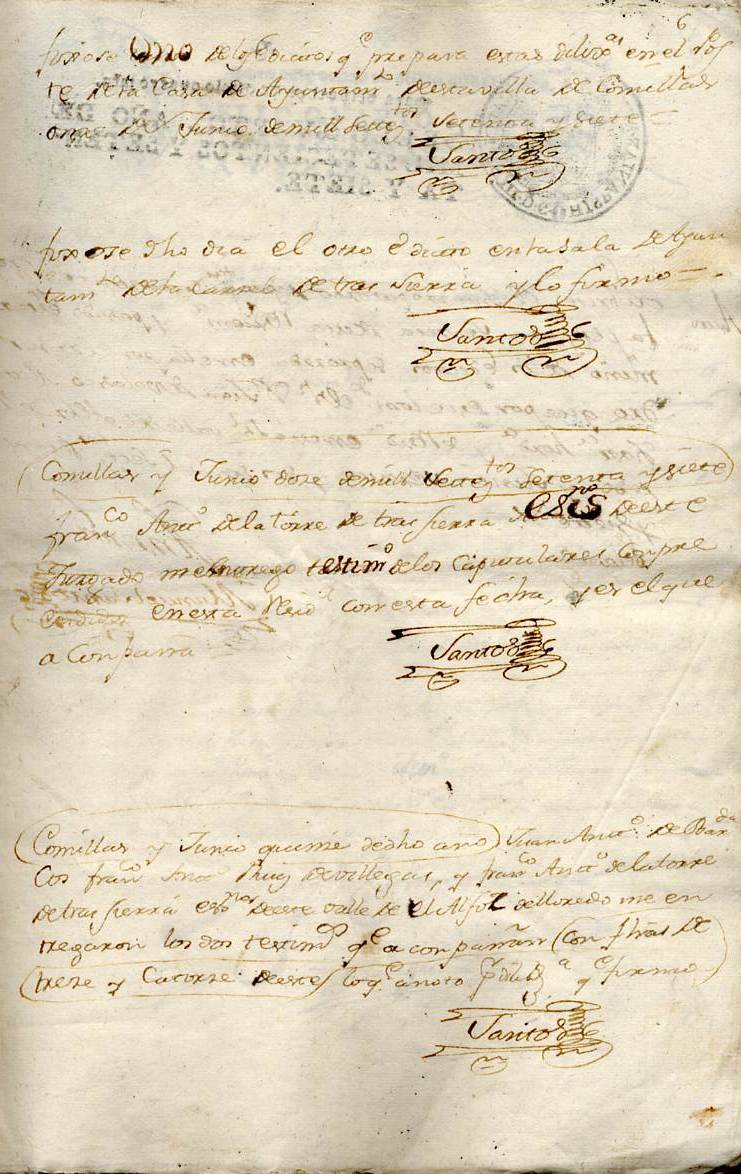 6
fixose Uno de los Edictos q.e prepara estas dilix.s en el Pos
te de la Casa de Ayuntam.to de esta villa de Comillas
onze de Junio de mill Sette.tos Setenta y siete =
Santos
fixose dho dia el otro Edicto en la sala de Ayun
tam.to de la Carzel de tras sierra y lo firmo =
Santos
Comillas y Junio doze de mill Sette.tos Setenta y siete
fran.co Ant.o de la torre de tras sierra es.no de este
Juzgado me entrego testim.o de los Capitulares
en esta con esta fecha, y es el que
acompaña
Santos
Comillas y Junio quince de dho año Juan Ant.o de Bar
Cos fran.co Ant.o Ruiz de villegas, y fran.co Ant.o de la torre
de tras sierra es.nos de este valle de el Alfoz de lloredo me en
tregaron los dos testim.s q.e acompañan con fhas de
treze y Catorze de este lo q.e anoto q.e firmo
Santos